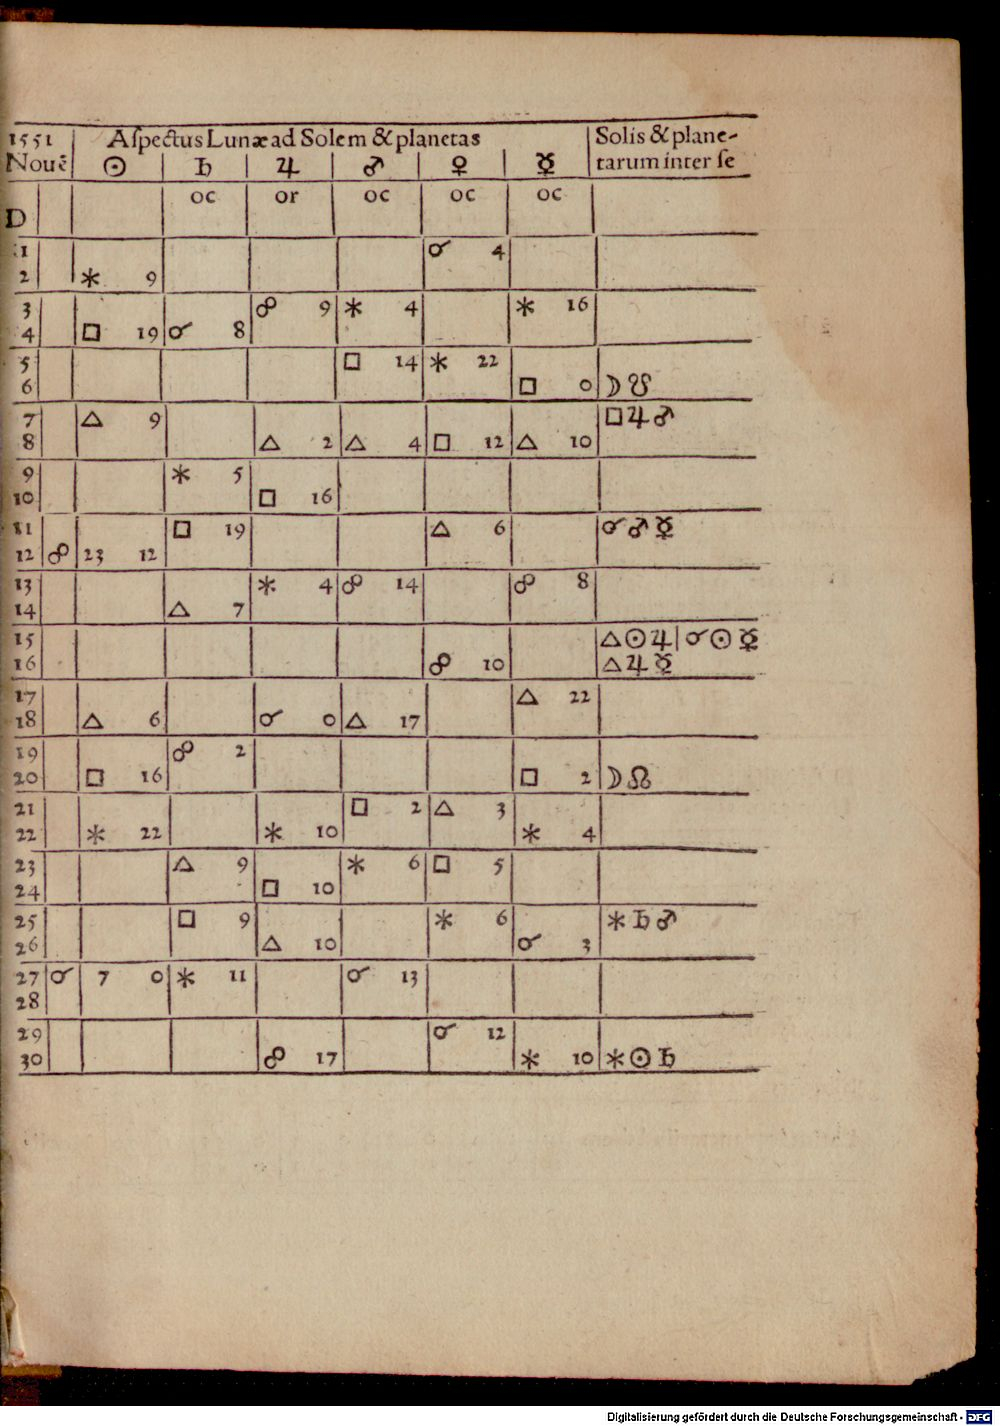 1551 Aſpectus Lunæ ad Solem & planetas Solis & plane-
Nouē ☉ ♄ ♃ ♂ ♀ ☿ tarum inter ſe
D oc or oc oc oc
1 ☌ 4
2 ⚹ 9
3 ☍ 9 ⚹ 4 ⚹ 16
4 □ 19 ☌ 8
5 □ 14 ⚹ 22
6 □ 0 ☽ ☋
7 △ 9 □ ♃ ♂
8 △ 2 △ 4 □ 12 △ 10
9 ⚹ 5
10 □ 16
11 □ 19 △ 6 ☌ ♂ ☿
12 ☍ 23 12
13 ⚹ 4 ☍ 14 ☍ 8
14 △ 7
15 △ ☉ ♃ | ☌ ☉ ☿
16 ☍ 10 △ ♃ ☿
17 △ 22
18 △ 6 ☌ 0 △ 17
19 ☍ 2
20 □ 16 □ 2 ☽ ☊
21 □ 2 △ 3
22 ⚹ 22 ⚹ 10 ⚹ 4
23 △ 9 ⚹ 6 □ 5
24 □ 10
25 □ 9 ⚹ 6 ⚹ ♄ ♂
26 △ 10 ☌ 3
27 ☌ 7 0 ⚹ 11 ☌ 13
28
29 ☌ 12
30 ☍ 17 ⚹ 10 ⚹ ☉ ♄
Digitalisierung gefördert durch die Deutsche Forschungsgemeinschaft - DFG